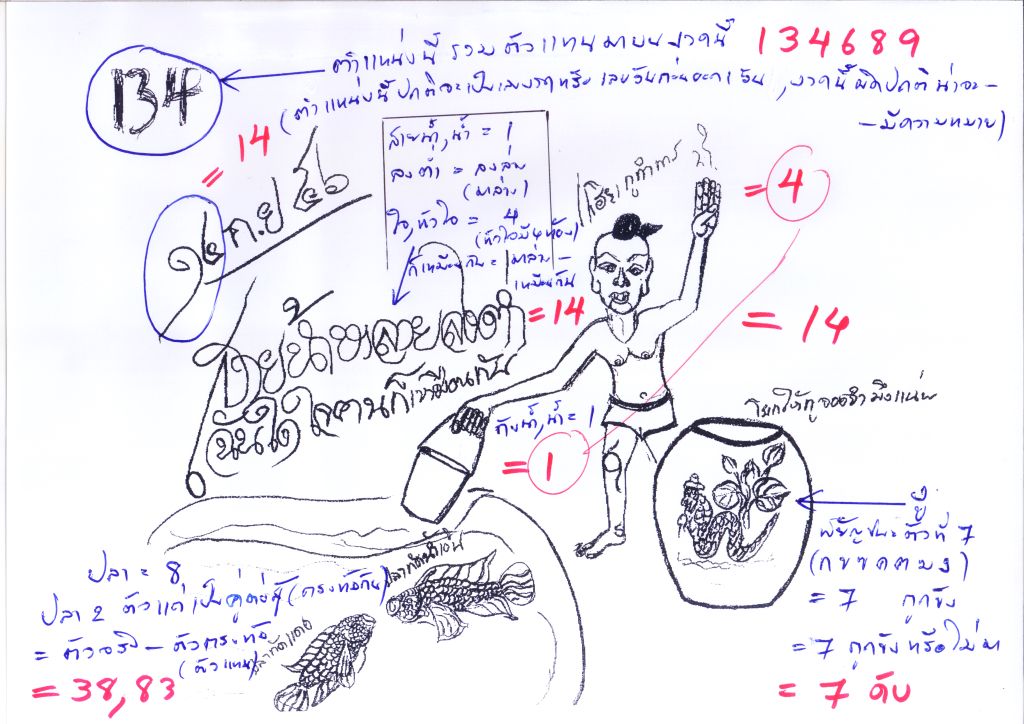 134
ตำแหน่งนี้ รวม ตัวแทน มาบน งวดนี้ 134689
(ตำแหน่งนี้ปกติจะเป็นเลขงวดหรือ เลขวันก่อนออก 1 วัน, งวดนี้ผิดปกติ น่าจะ-
-มีความหมาย)
= 14
๑๔ ก.ย ๕๖
สายน้ำ, น้ำ = 1
ลงต่ำ = ลงล่าง
(มาล่าง)
ใจ, หัวใจ = 4
(หัวใจมี ๔ ห้อง)
ก็เหมือนกัน = มาล่าง-
เหมือนกัน
กูทำการ
= 4
สายน้ำไหลลงต่ำ
= 14
= 14
ฉันใด ใจคนก็เหมือนกัน
ถังน้ำ, น้ำ = 1
= 1
งู
พยัญชนะตัวที่ 7
(ก ข ฃ ค ต ฆ ง)
= 7 ถูกขัง
= 7 ถูกขังหรือไม่มา
= 7 ดับ
ปลา = 8,
ปลา 2 ตัวแต่เป็นคู่ต่อสู้ (ตรงข้ามกัน)
= ตัวจริง - ตัวตรงข้าม
(ตัวแทน)
= 38,83
ปลากัดน้ำเงิน
ปลากัดแดง